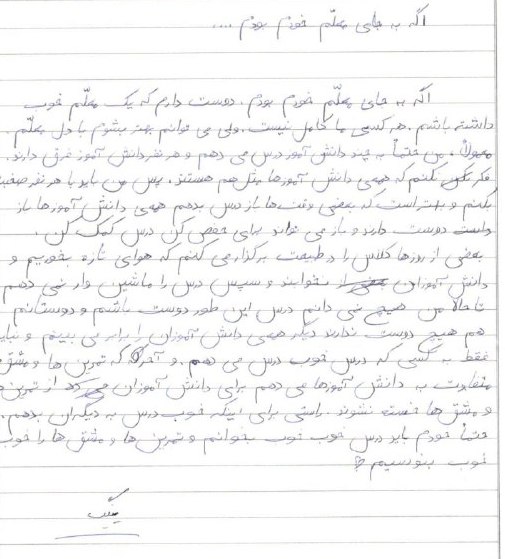 اگه به جای معلّم خودم بودم ....
اگه به جای معلّم خودم بودم. دوست دارم که یک معلّم خوب
داشته باشم. هر کسی ما کامل نیست. ولی می توانم بهتر بشوم با دل معلّم.
معمولاً، من حتماً به چند دانش آموز درس می دهم و هر نفر دانش آموز فرق دارند.
فکر نکنم که همه ی دانش آموزها مثل هم هستند. پس من باید با هر نفر صحبت
بکنم و بهتر است که بعضی وقت ها باز درس بدهم همه ی دانش آموزها باز
دوست دارند و باز می تواند برای حفص کن درس کمک کن.
بعضی از روزها کلاس را در طبیعت برگزار می کنم که هوای تازه بخوریم و
دانش آموزان بخوابند و سپس درس را ماشین وار نمی دهم
تا حالا من هیچ نمی دانم درس این طور دوست باشم و دوستانم
هم هیچ دوست ندارند دیگر همه ی دانش آموزان را برابر می بینم و نباید
فقط به کسی که درس خوب درس می دهم. و آخر که تمرین ها و مشق
متفاوت به دانش آموزها می دهم برای دانش آموزان از تمرین
و مشق ها خسته نشوند. راستی برای اینکه خوب درس به دیگران بدهم.
حتماً خودم باید درس خوب خوب بخوانم و تمرین ها و مشق ها را خوب
خوب بنویسیم